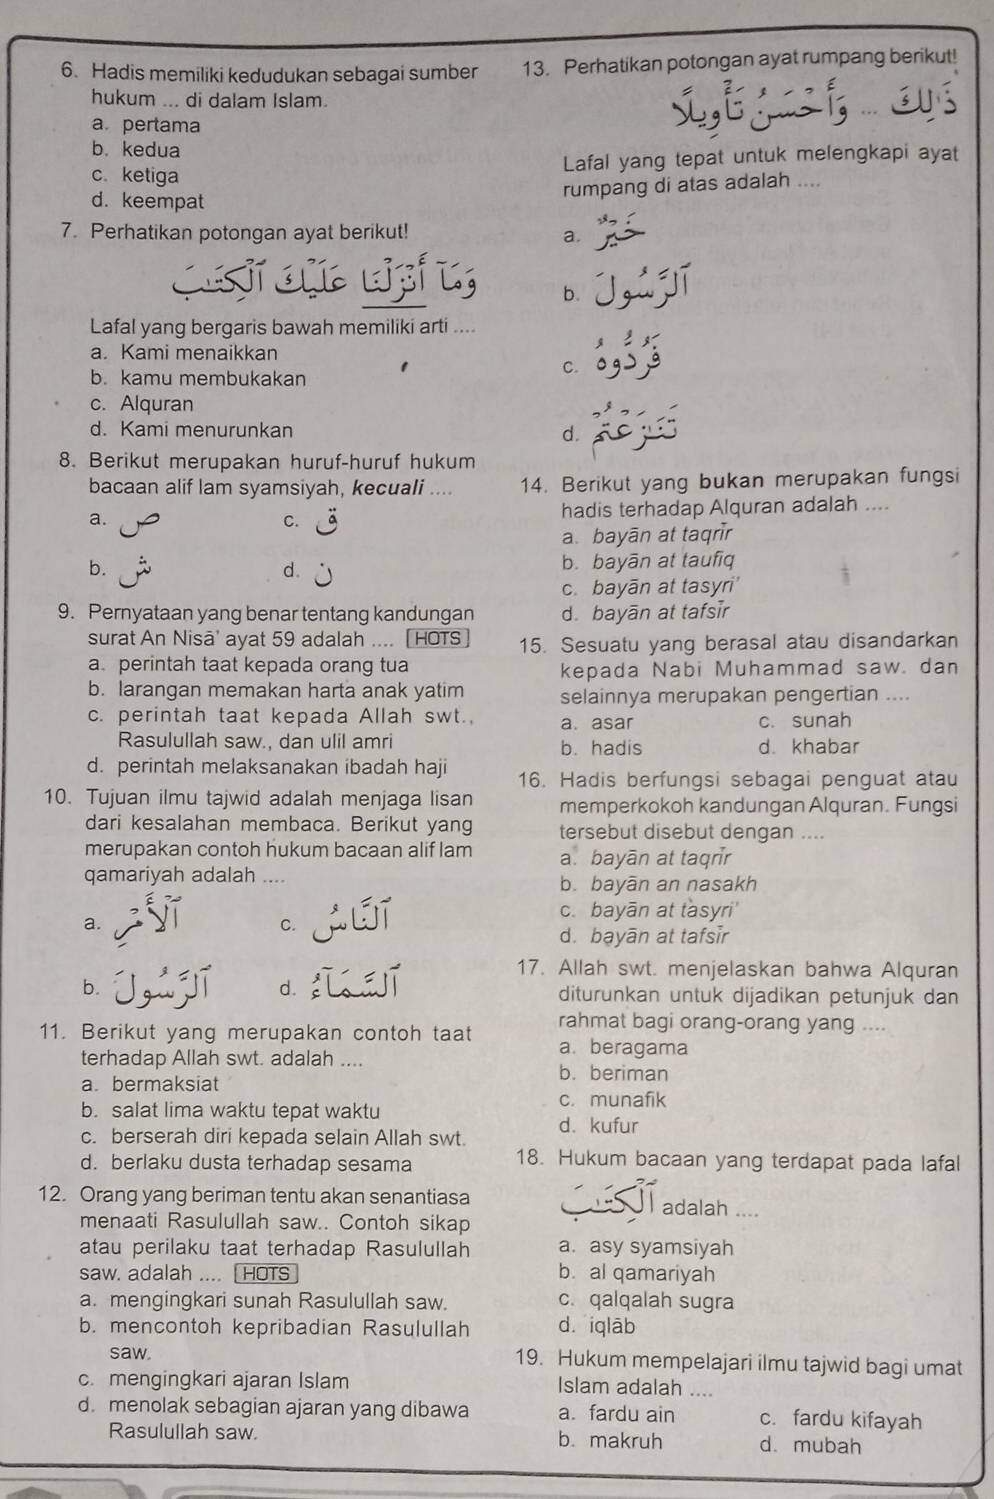 6. Hadis memiliki kedudukan sebagai sumber
hukum ... di dalam Islam.
a. pertama
b. kedua
c. ketiga
d. keempat
7. Perhatikan potongan ayat berikut!
وَمَآ أَنْزَلْنَا عَلَيْكَ ٱلْكِتَٰبَ
Lafal yang bergaris bawah memiliki arti ....
a. Kami menaikkan
b. kamu membukakan
c. Alquran
d. Kami menurunkan
8. Berikut merupakan huruf-huruf hukum
bacaan alif lam syamsiyah, kecuali ....
a. ص c. ق
b. ش d. ن
9. Pernyataan yang benar tentang kandungan
surat An Nisā' ayat 59 adalah .... HOTS
a. perintah taat kepada orang tua
b. larangan memakan harta anak yatim
c. perintah taat kepada Allah swt.,
Rasulullah saw., dan ulil amri
d. perintah melaksanakan ibadah haji
10. Tujuan ilmu tajwid adalah menjaga lisan
dari kesalahan membaca. Berikut yang
merupakan contoh hukum bacaan alif lam
qamariyah adalah ....
a. ٱلْأَمْرِ c. ٱلنَّاسُ
b. ٱلرَّسُولَ d. ٱلسَّمَآءُ
11. Berikut yang merupakan contoh taat
terhadap Allah swt. adalah ....
a. bermaksiat
b. salat lima waktu tepat waktu
c. berserah diri kepada selain Allah swt.
d. berlaku dusta terhadap sesama
12. Orang yang beriman tentu akan senantiasa
menaati Rasulullah saw.. Contoh sikap
atau perilaku taat terhadap Rasulullah
saw. adalah .... HOTS
a. mengingkari sunah Rasulullah saw.
b. mencontoh kepribadian Rasulullah
saw.
c. mengingkari ajaran Islam
d. menolak sebagian ajaran yang dibawa
Rasulullah saw.
13. Perhatikan potongan ayat rumpang berikut!
ذَٰلِكَ ... وَأَحْسَنُ تَأْوِيلًا
Lafal yang tepat untuk melengkapi ayat
rumpang di atas adalah ....
a. خَيْرٌ
b. ٱلرَّسُولَ
c. فَرُدُّوهُ
d. تَنَٰزَعْتُمْ
14. Berikut yang bukan merupakan fungsi
hadis terhadap Alquran adalah ....
a. bayān at taqrīr
b. bayān at taufīq
c. bayān at tasyri'
d. bayān at tafsīr
15. Sesuatu yang berasal atau disandarkan
kepada Nabi Muhammad saw. dan
selainnya merupakan pengertian ....
a. asar c. sunah
b. hadis d. khabar
16. Hadis berfungsi sebagai penguat atau
memperkokoh kandungan Alquran. Fungsi
tersebut disebut dengan ....
a. bayān at taqrīr
b. bayān an nasakh
c. bayān at tasyri'
d. bayān at tafsīr
17. Allah swt. menjelaskan bahwa Alquran
diturunkan untuk dijadikan petunjuk dan
rahmat bagi orang-orang yang ....
a. beragama
b. beriman
c. munafik
d. kufur
18. Hukum bacaan yang terdapat pada lafal
ٱلْكِتَٰبَ adalah ....
a. asy syamsiyah
b. al qamariyah
c. qalqalah sugra
d. iqlāb
19. Hukum mempelajari ilmu tajwid bagi umat
Islam adalah ....
a. fardu ain c. fardu kifayah
b. makruh d. mubah